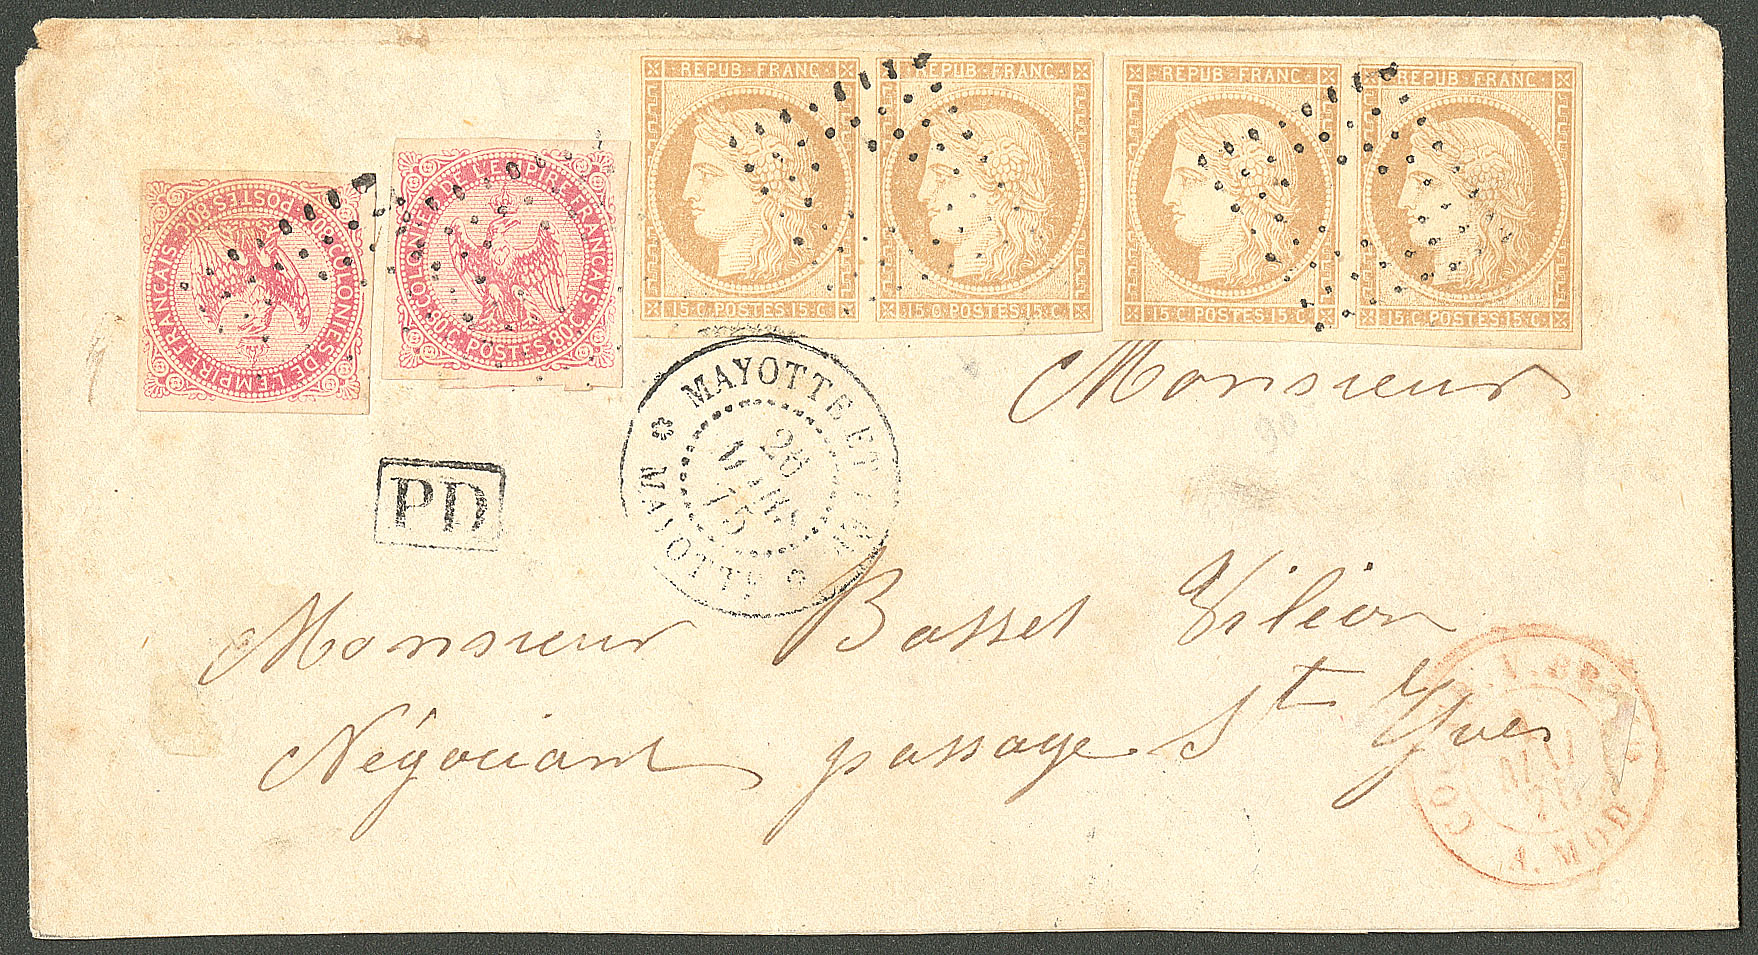 REPUB·FRANC
15·C·POSTES·15·C·
REPUB·FRANC
15·C·POSTES·15·C·
REPUB·FRANC
15·C·POSTES·15·C·
REPUB·FRANC
15·C·POSTES·15·C·
COLONIES DE L'EMPIRE FRANÇAIS
80C POSTES 80C
COLONIES DE L'EMPIRE FRANÇAIS
80C POSTES 80C
MAYOTTE ET
MAYOTTE
MARS
75
PD
Monsieur
Monsieur Basset
Négociant passage St Yves
A. MOD